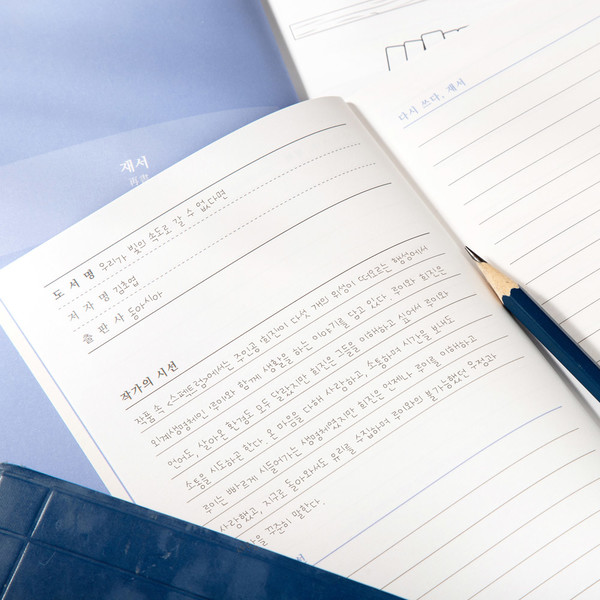 재서
再書
다시 쓰다, 재서
도 서 명 우리가 빛의 속도로 갈 수 없다면
저 자 명 김초엽
출 판 사 동아시아
작가의 시선
작품 속 <스펙트럼>에서는 주인공 희진이 다섯 개의 위성이 떠오르는 행성에서
외계생명체인 루이와 함께 생활을 하는 이야기를 담고 있다. 루이와 희진은
언어도, 살아온 환경도 모두 달랐지만 희진은 그들을 이해하고 싶어서 루이와
소통을 시도하곤 한다. 온 마음을 다해 사랑하고, 소통하며 시간을 보내도
루이는 빠르게 시들어가는 생명체였지만 희진은 언제나 루이를 이해하고
사랑했고, 지구로 돌아와서도 유리를 수집하며 루이와의 불가능했던 우정과
을 꾸준히 말한다.